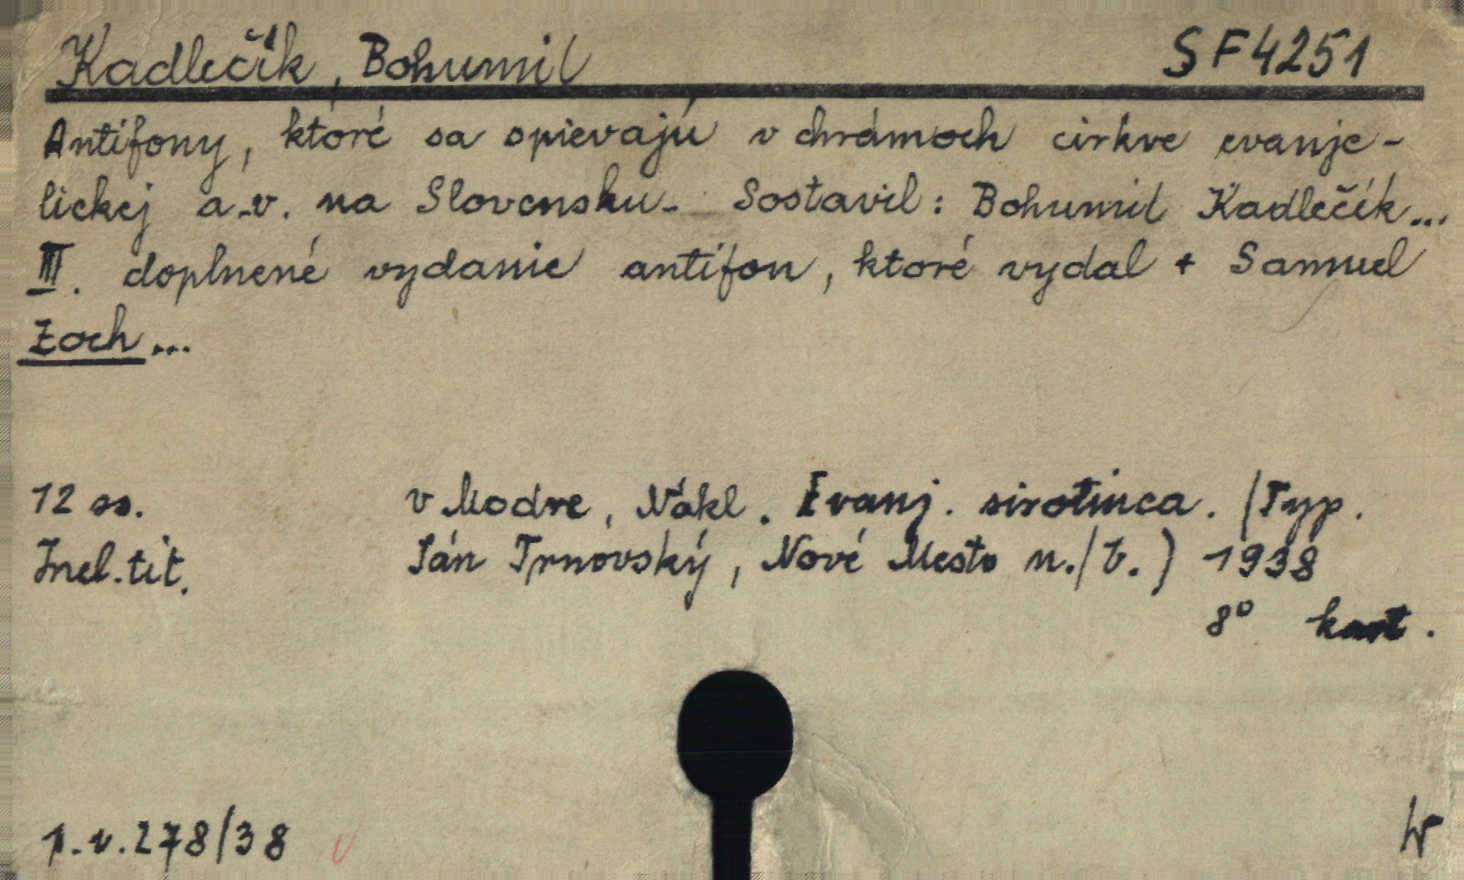 Kadlečík, Bohumil SF4251
Antifony, ktoré sa spievajú v chrámoch cirkve evanje-
lickej a.v. na Slovensku. Sostavil: Bohumil Kadlečík...
III. doplnené vydanie antifon, ktoré vydal + Samuel
Zoch...
12 ss. v Modre, Nákl. Evanj. sirotinca. (Typ.
Incl. tit. Ján Trnovský, Nové Mesto n./V.) 1938
8° kart.
p.v.278/38